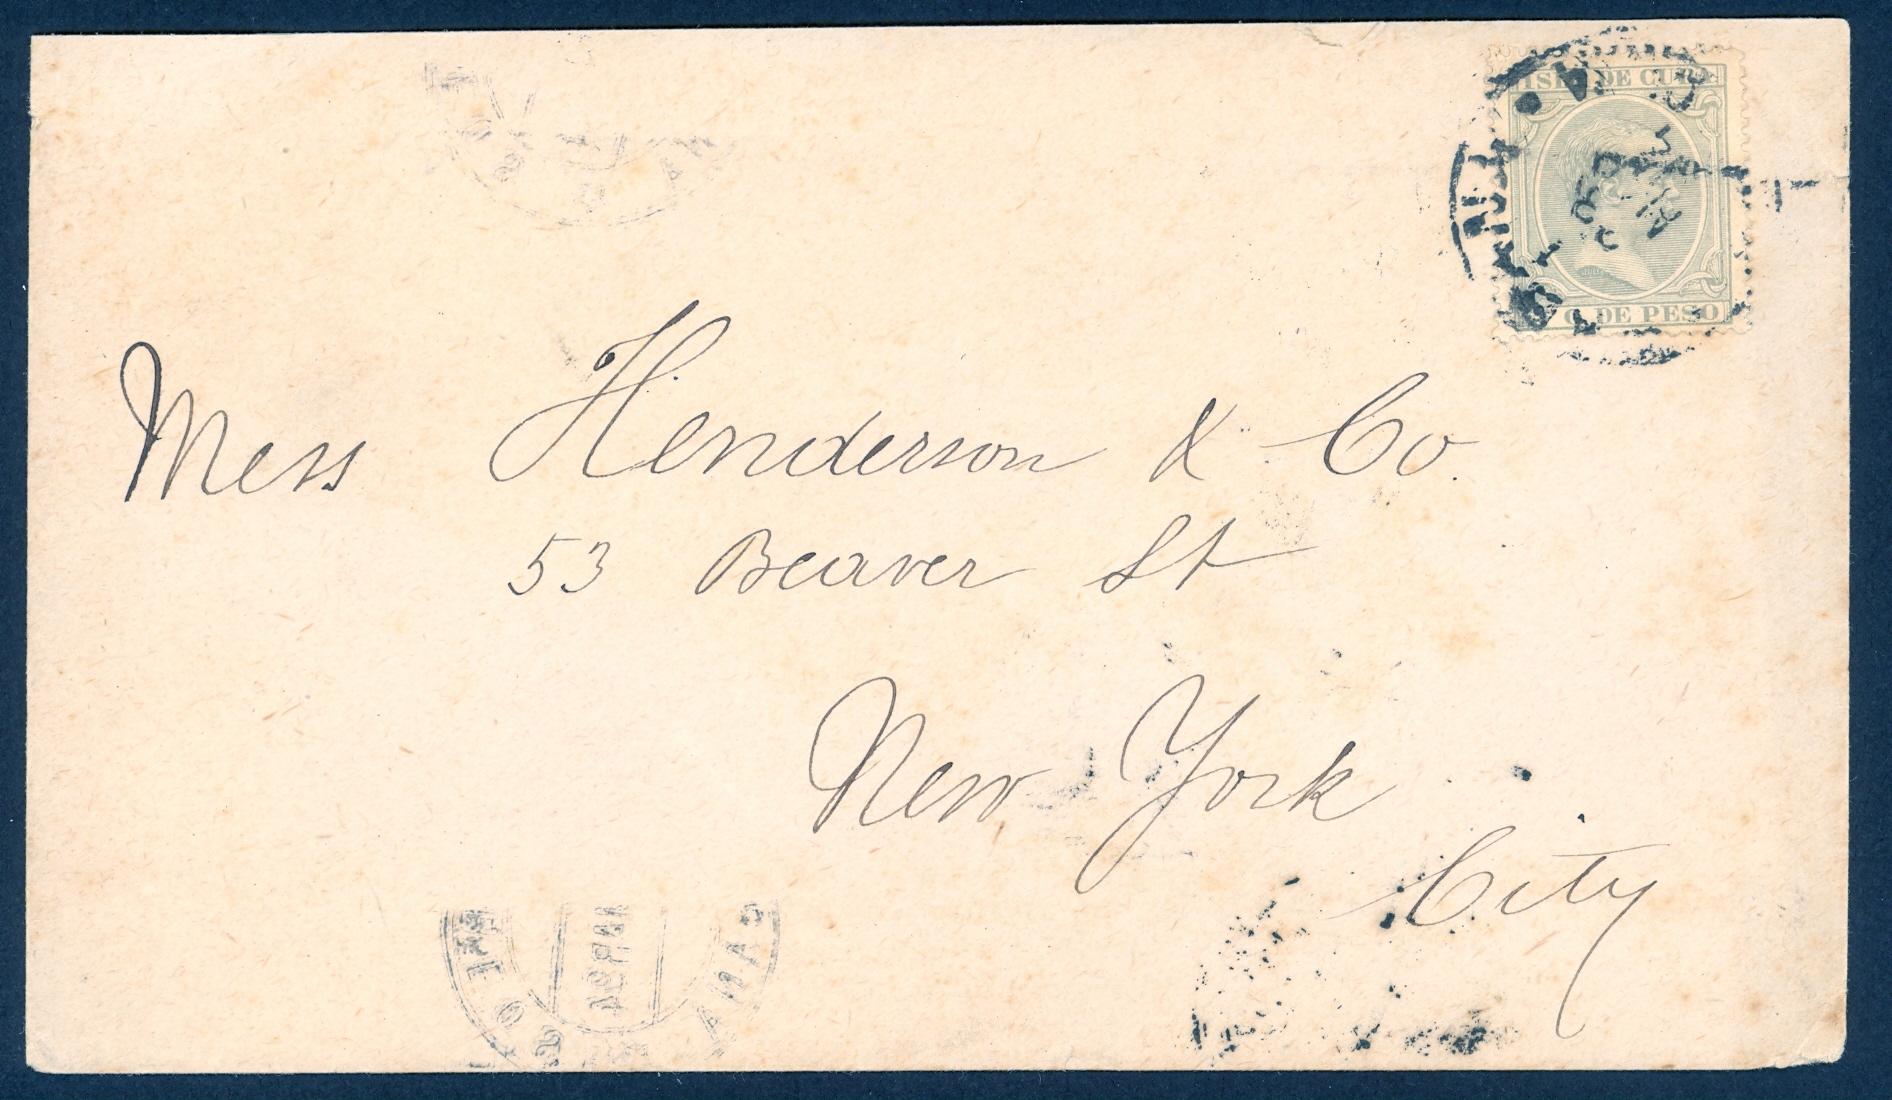 ISLA DE CUBA
C. DE PESO
Mess Henderson & Co.
53 Beaver St
New York
City